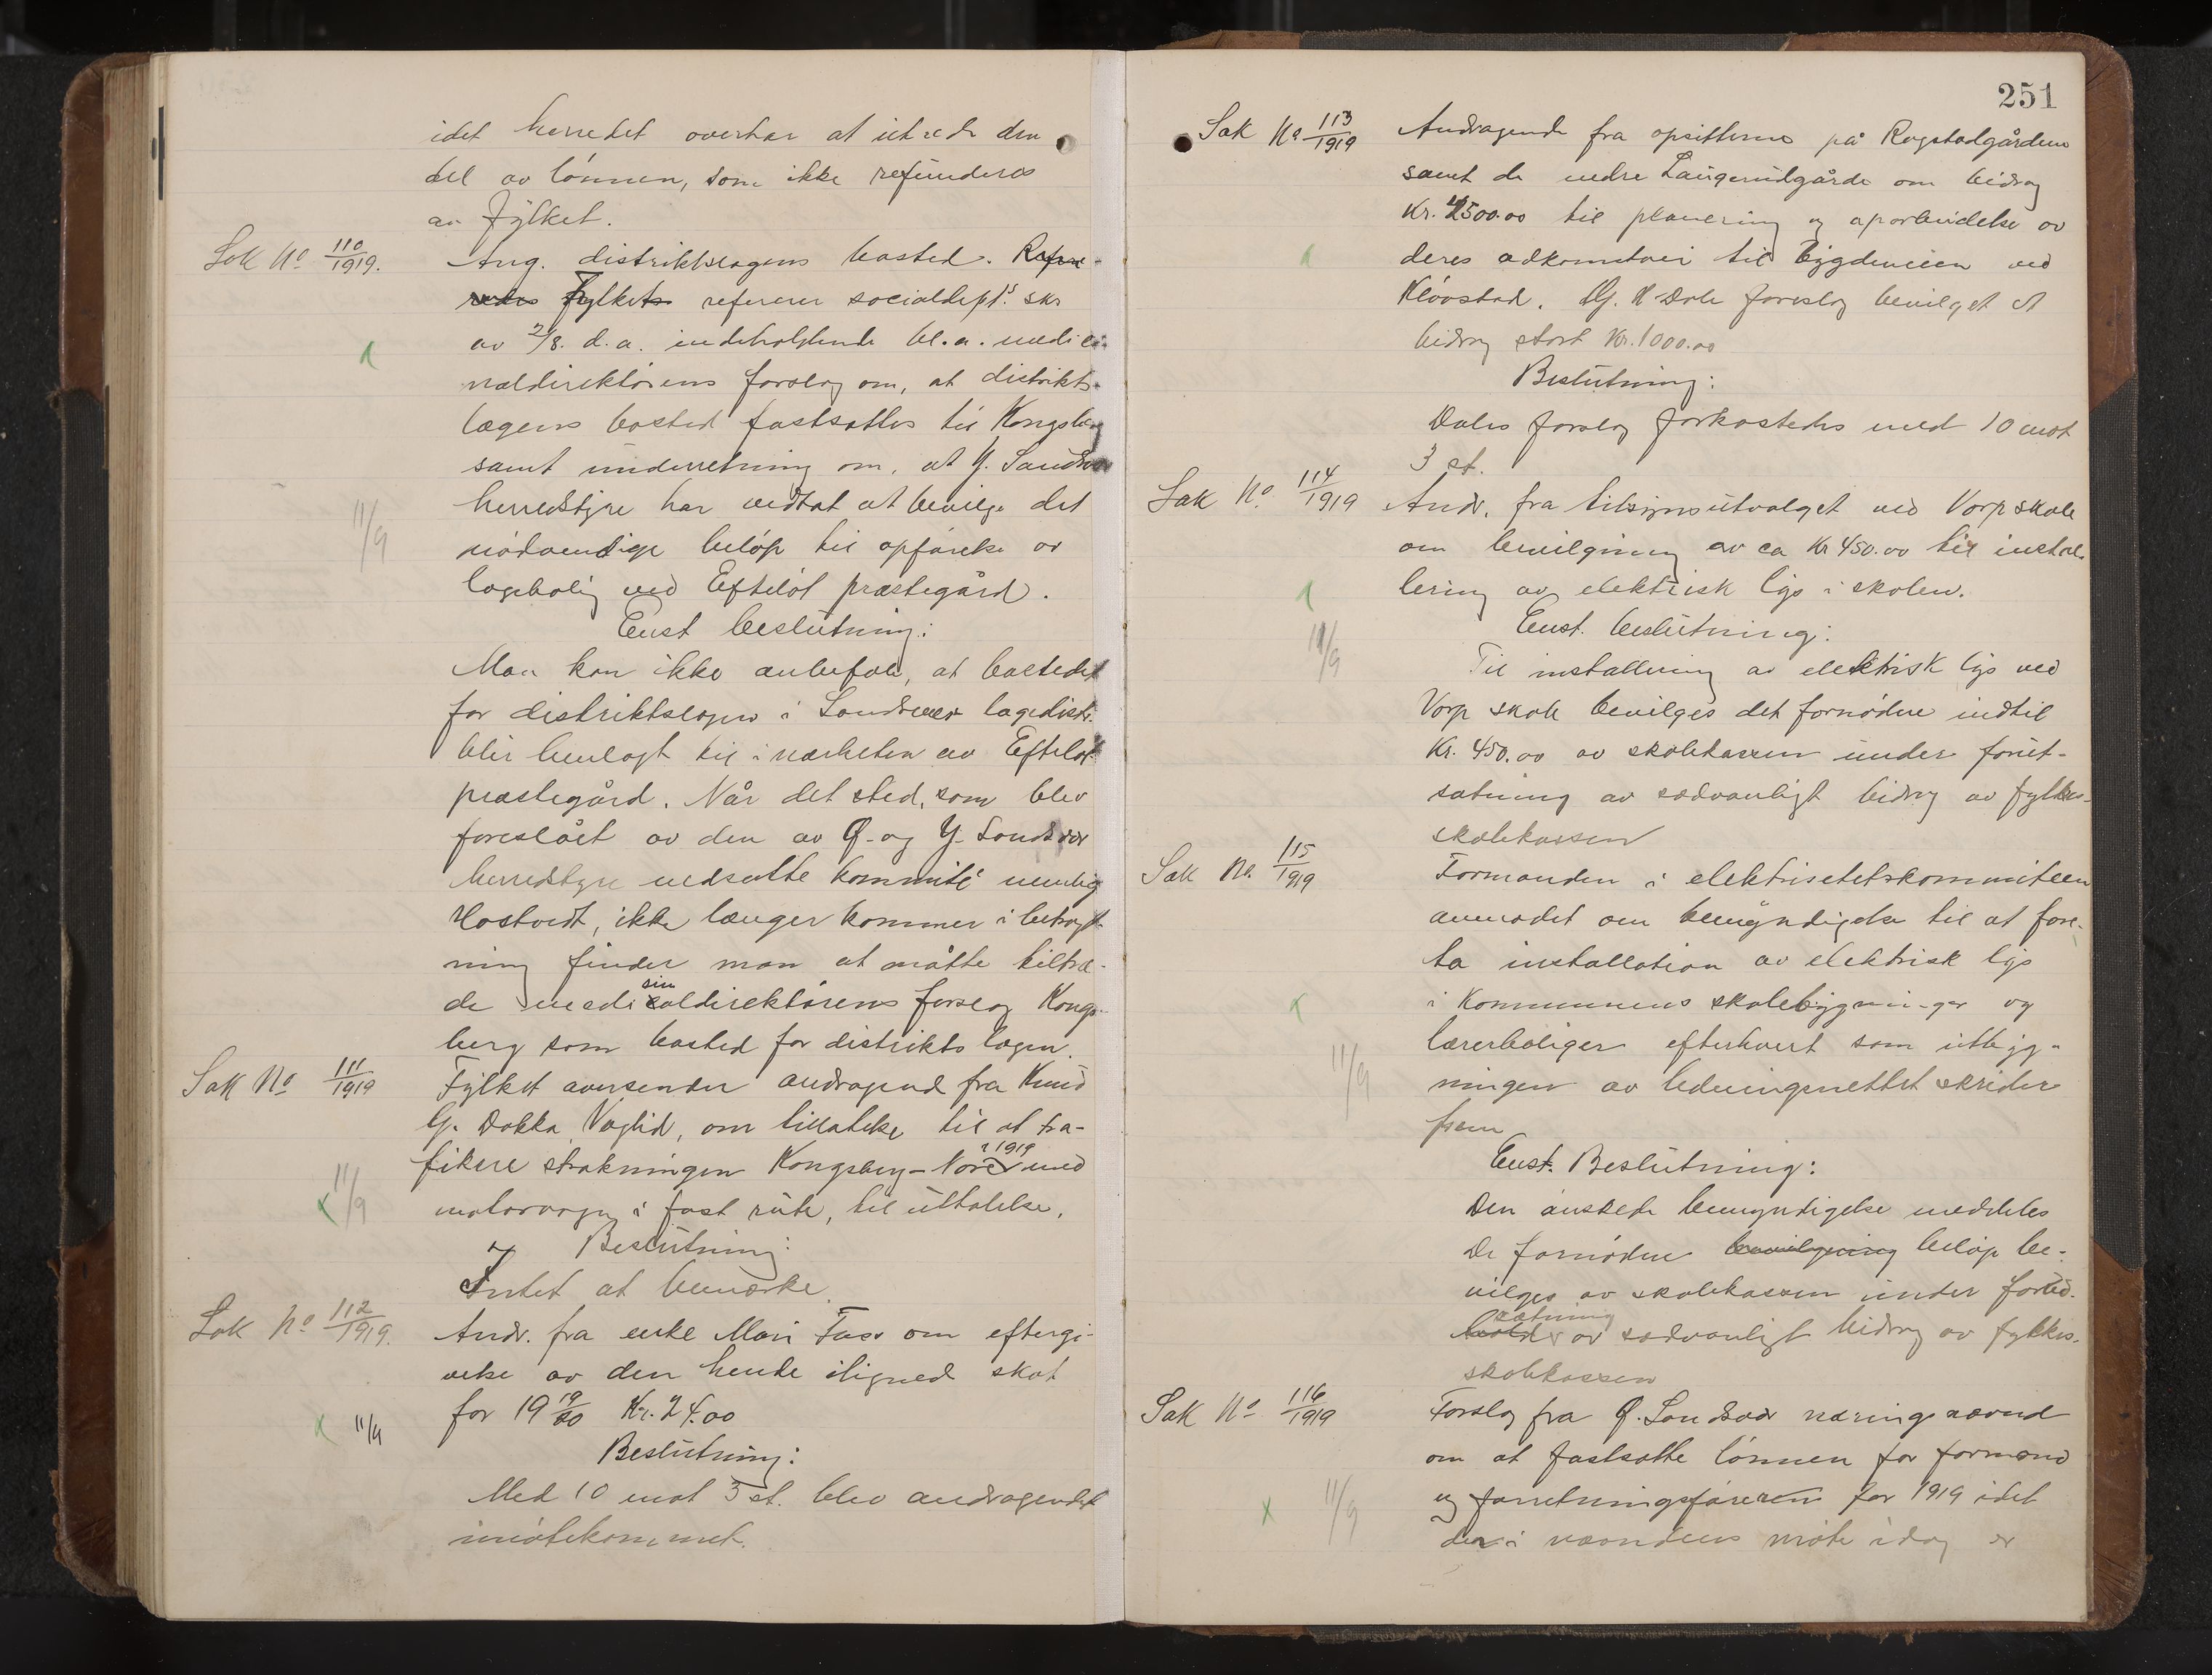 idet herredet overtar at utrede den
del av lønnen, som ikke refunderes
av fylket.
Sak No 110/1919. Ang. distriktslægens bosted. Refere-
redes fylkets referer socialdept.s skr
av 2/8. d.a. indeholdende bl.a. medici-
naldirektørens forslag om, at distrikts-
lægens bosted fastsættes til Kongsberg
samt underretning om, at Y. Sandsvær
11/9 herredstyre har vedtat at bevilge det
nødvendige beløp til opførelse av
lægebolig ved Efteløt præstegård.
Enst beslutning:
Man kan ikke anbefale, at bostedet
for distriktslægen i Sandsvær lægedistr.
blir henlagt til i nærheten av Efteløt
præstegård. Når det sted, som blev
foreslået av den av Ø- og Y- Sandsvær
herredstyre nedsatte kommité nemlig
Hostvedt, ikke længer kommer i betragt-
ning finder man at måtte tiltræ-
de medisinaldirektørens forslag Kongs-
berg som bosted for distriktslægen.
Sak No 111/1919 Fylket oversender andragend fra Knud
G. Dokka, Veglid, om tillatelse til at tra-
fikere strækningen Kongsberg - Nore i 1919 med
11/9 motorvogn i fast rute, til uttalelse.
Beslutning:
Intet at bemærke.
Sak No 112/1919. Andr. fra enke Mari Foss om eftergi-
velse av den hende iligned skat
11/9 for 19 19/20 Kr. 24.00
Beslutning:
Med 10 mot 3 st. blev andragendet
imøtekommet.
251
Sak No 113/1919 Andragende fra opsitterne på Rogstadgårdene
samt de nedre Laugerudgårde om bidrag
Kr. 4500.00 til planering og oparbeidelse av
deres adkomstvei til bygdeveien ved
Kløvstad. G. H. Dole foreslog bevilget et
bidrag stort Kr. 1000.00
Beslutning:
Doles forslag forkastedes med 10 mot
3 st.
Sak No. 114/1919 Andr. fra tilsynsutvalget ved Vorp skole
om bevilgning av ca Kr 450.00 til instal-
lering av elektrisk lys i skolen.
11/9 Enst. beslutning:
Til installering av elektrisk lys ved
Vorp skole bevilges det fornødne indtil
Kr. 450.00 av skolekassen under forut-
sætning av sedvanligt bidrag av fylkes-
skolekassen
Sak No. 115/1919 Formanden i elektrisetetskommiteen
anmodet om bemyndigelse til at fore-
ta installation av elektrisk lys
i kommunens skolebygninger og
lærerboliger efterhvert som utbyg-
11/9 ningen av ledningsnettet skrider
frem
Enst. Beslutning:
Den ønskede bemyndigelse meddeles
De fornødne bevilgning beløp be-
vilges av skolekassen under forud-
sætning
av sedvanligt bidrag av fylkes-
skolekassen
Sak No 116/1919 Forslag fra Ø. Sandsvær næringsnævnd
om at fastsætte lønnen for formand
11/9 og forretningsføreren for 1919 idet
der i nævndens møte idag er